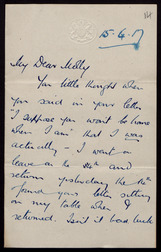 15-4-17
My Dear Molly
You little thought when
you said in your letter
"I suppose you want to know
when I am" that I was
actually - I went on
leave on the 4th and
returned yesterday the 14th
found your letter sitting
on my table when I
returned. Isn't it bad luck